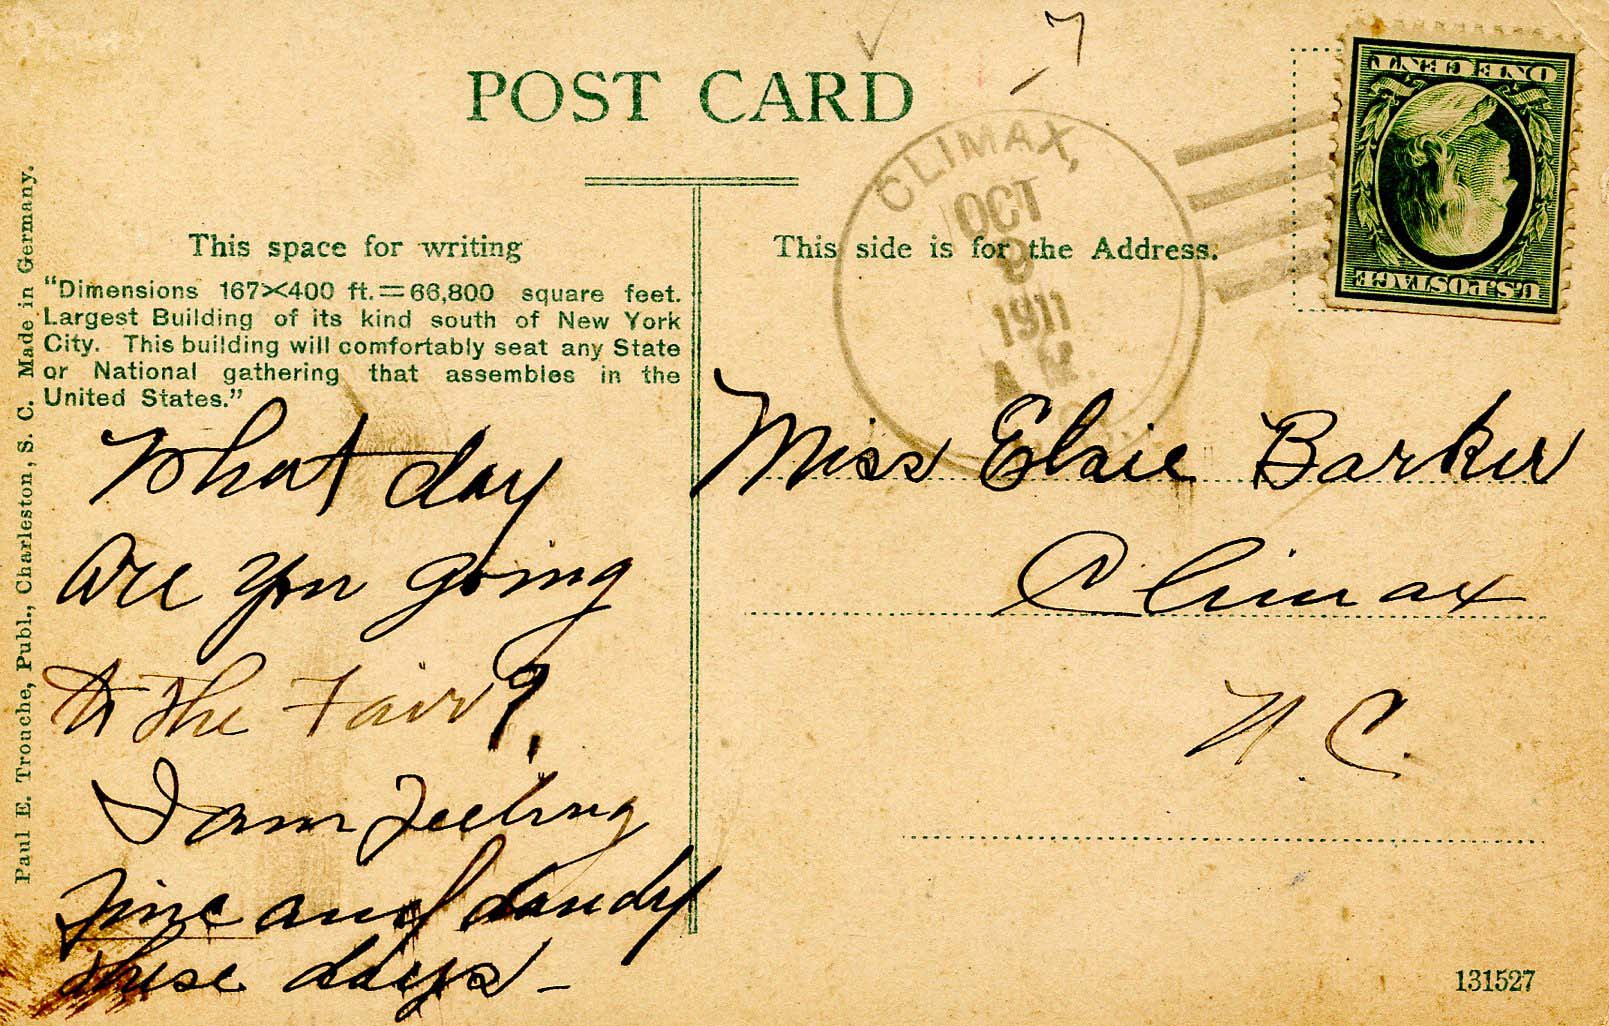 POST CARD
This space for writing
"Dimensions 167×400 ft.=66,800 square feet.
Largest Building of its kind south of New York
City. This building will comfortably seat any State
or National gathering that assembles in the
United States."
What day
are you going
to the Fair?
I am feeling
fine and dandy
these days -
Paul E. Trouche, Publ., Charleston, S. C. Made in Germany.
This side is for the Address.
CLIMAX,
OCT
9
1911
A.M.
ONE CENT
U.S. POSTAGE
Miss Elsie Barker
Climax
N. C.
131527